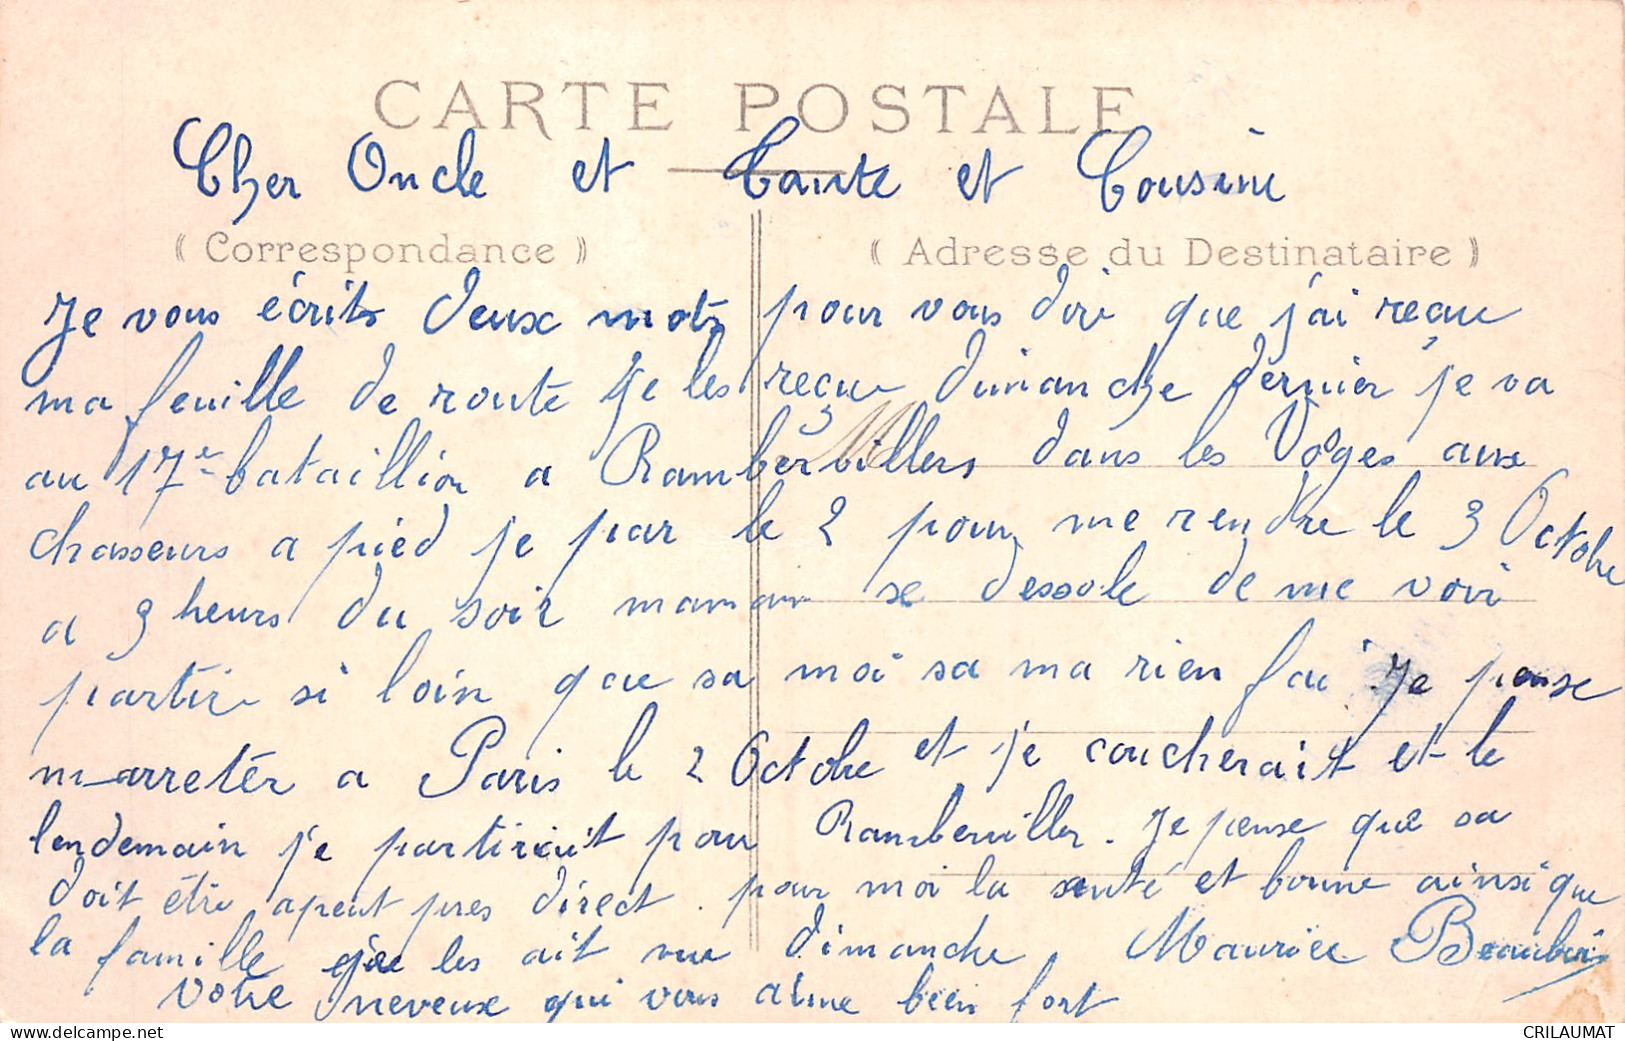 CARTE POSTALE
Cher Oncle et Tante et Cousine
(Correspondance)
(Adresse du Destinataire)
Je vous écrits deux mots pour vous dire que j'ai reçue
ma feuille de route je les reçue dimanche dernier je va
au 17e bataillion a Rambervillers dans les Vosges aux
chasseurs a pied je par le 2 pour me rendre le 3 Octobre
a 3 heurs du soir maman se dessole de me voir
partir si loin que sa moi sa ma rien fai Je pense
m arretér a Paris le 2 Octobre et je coucherait et le
lendemain je partirait pour Ramberviller. Je pense que sa
doit être apeut pres direct. pour moi la santé et bonne ainsi que
la famille que les ait vue dimanche Maurice Beaubois
votre neveux qui vous aime bien fort
www.delcampe.net
CRILAUMAT